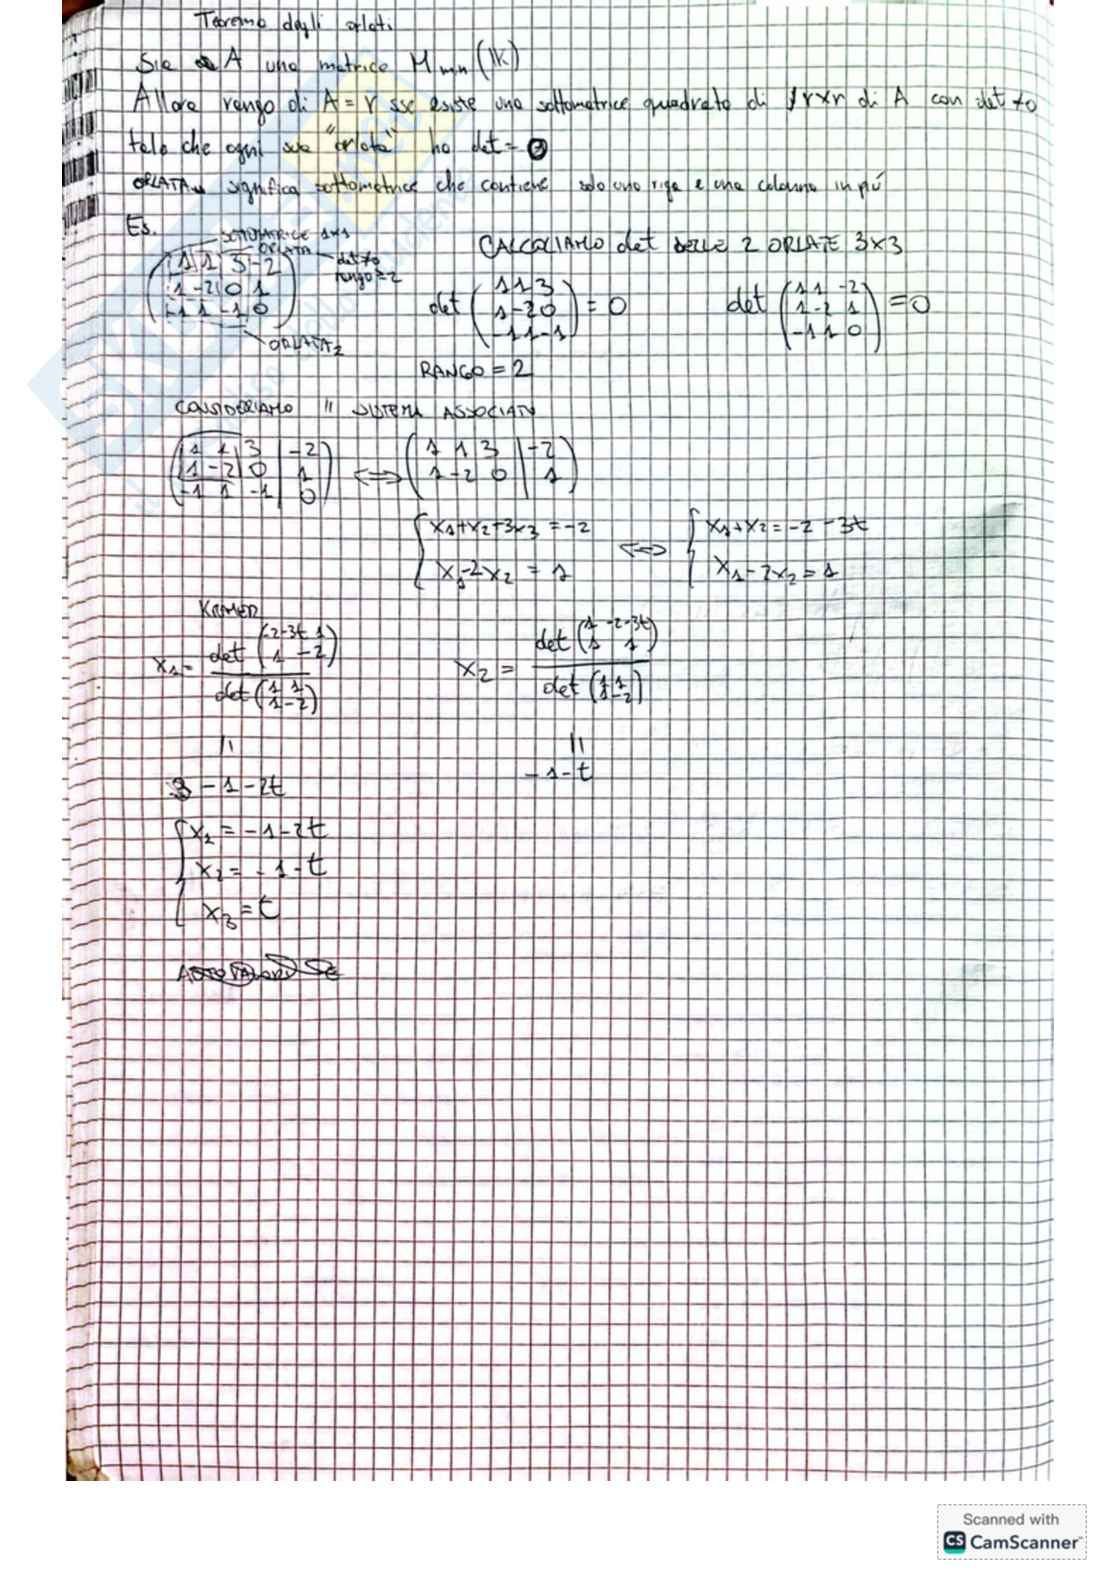 Teorema degli orlati
Sia A una matrice Mmn (K)
Allora rango di A = r sse esiste una sottomatrice quadrata di rxr di A con det ≠0
tale che ogni sua "orlata" ha det = 0
ORLATA significa sottomatrice che contiene solo una riga e una colonna in più
Es.
SOTTOMATRICE 1x1
ORLATA
det≠0
rango ≥ 2
1 1 3 -2
1 -2 0 1
-1 1 -1 0
ORLATA 2
CALCOLIAMO det DELLE 2 ORLATE 3x3
det (1 1 3
1 -2 0
-1 1 -1) = 0
det (1 1 -2
1 -2 1
-1 1 0) = 0
RANGO = 2
CONSIDERIAMO Il SISTEMA ASSOCIATO
(1 1 3 | -2
1 -2 0 | 1
-1 1 -1 | 0) ⟺ (1 1 3 | -2
1 -2 0 | 1)
{x1+x2+3x3 = -2
x1-2x2 = 1 ⟺ {x1+x2 = -2-3t
x1-2x2 = 1
KRAMER
x1 = det (-2-3t 1
1 -2)
det (1 1
1 -2)
x2 = det (1 -2-3t
1 1)
det (1 1
1 -2)
=
-1-2t
=
-1-t
{x1 = -1-2t
x2 = -1-t
x3 = t
Scanned with
CS CamScanner